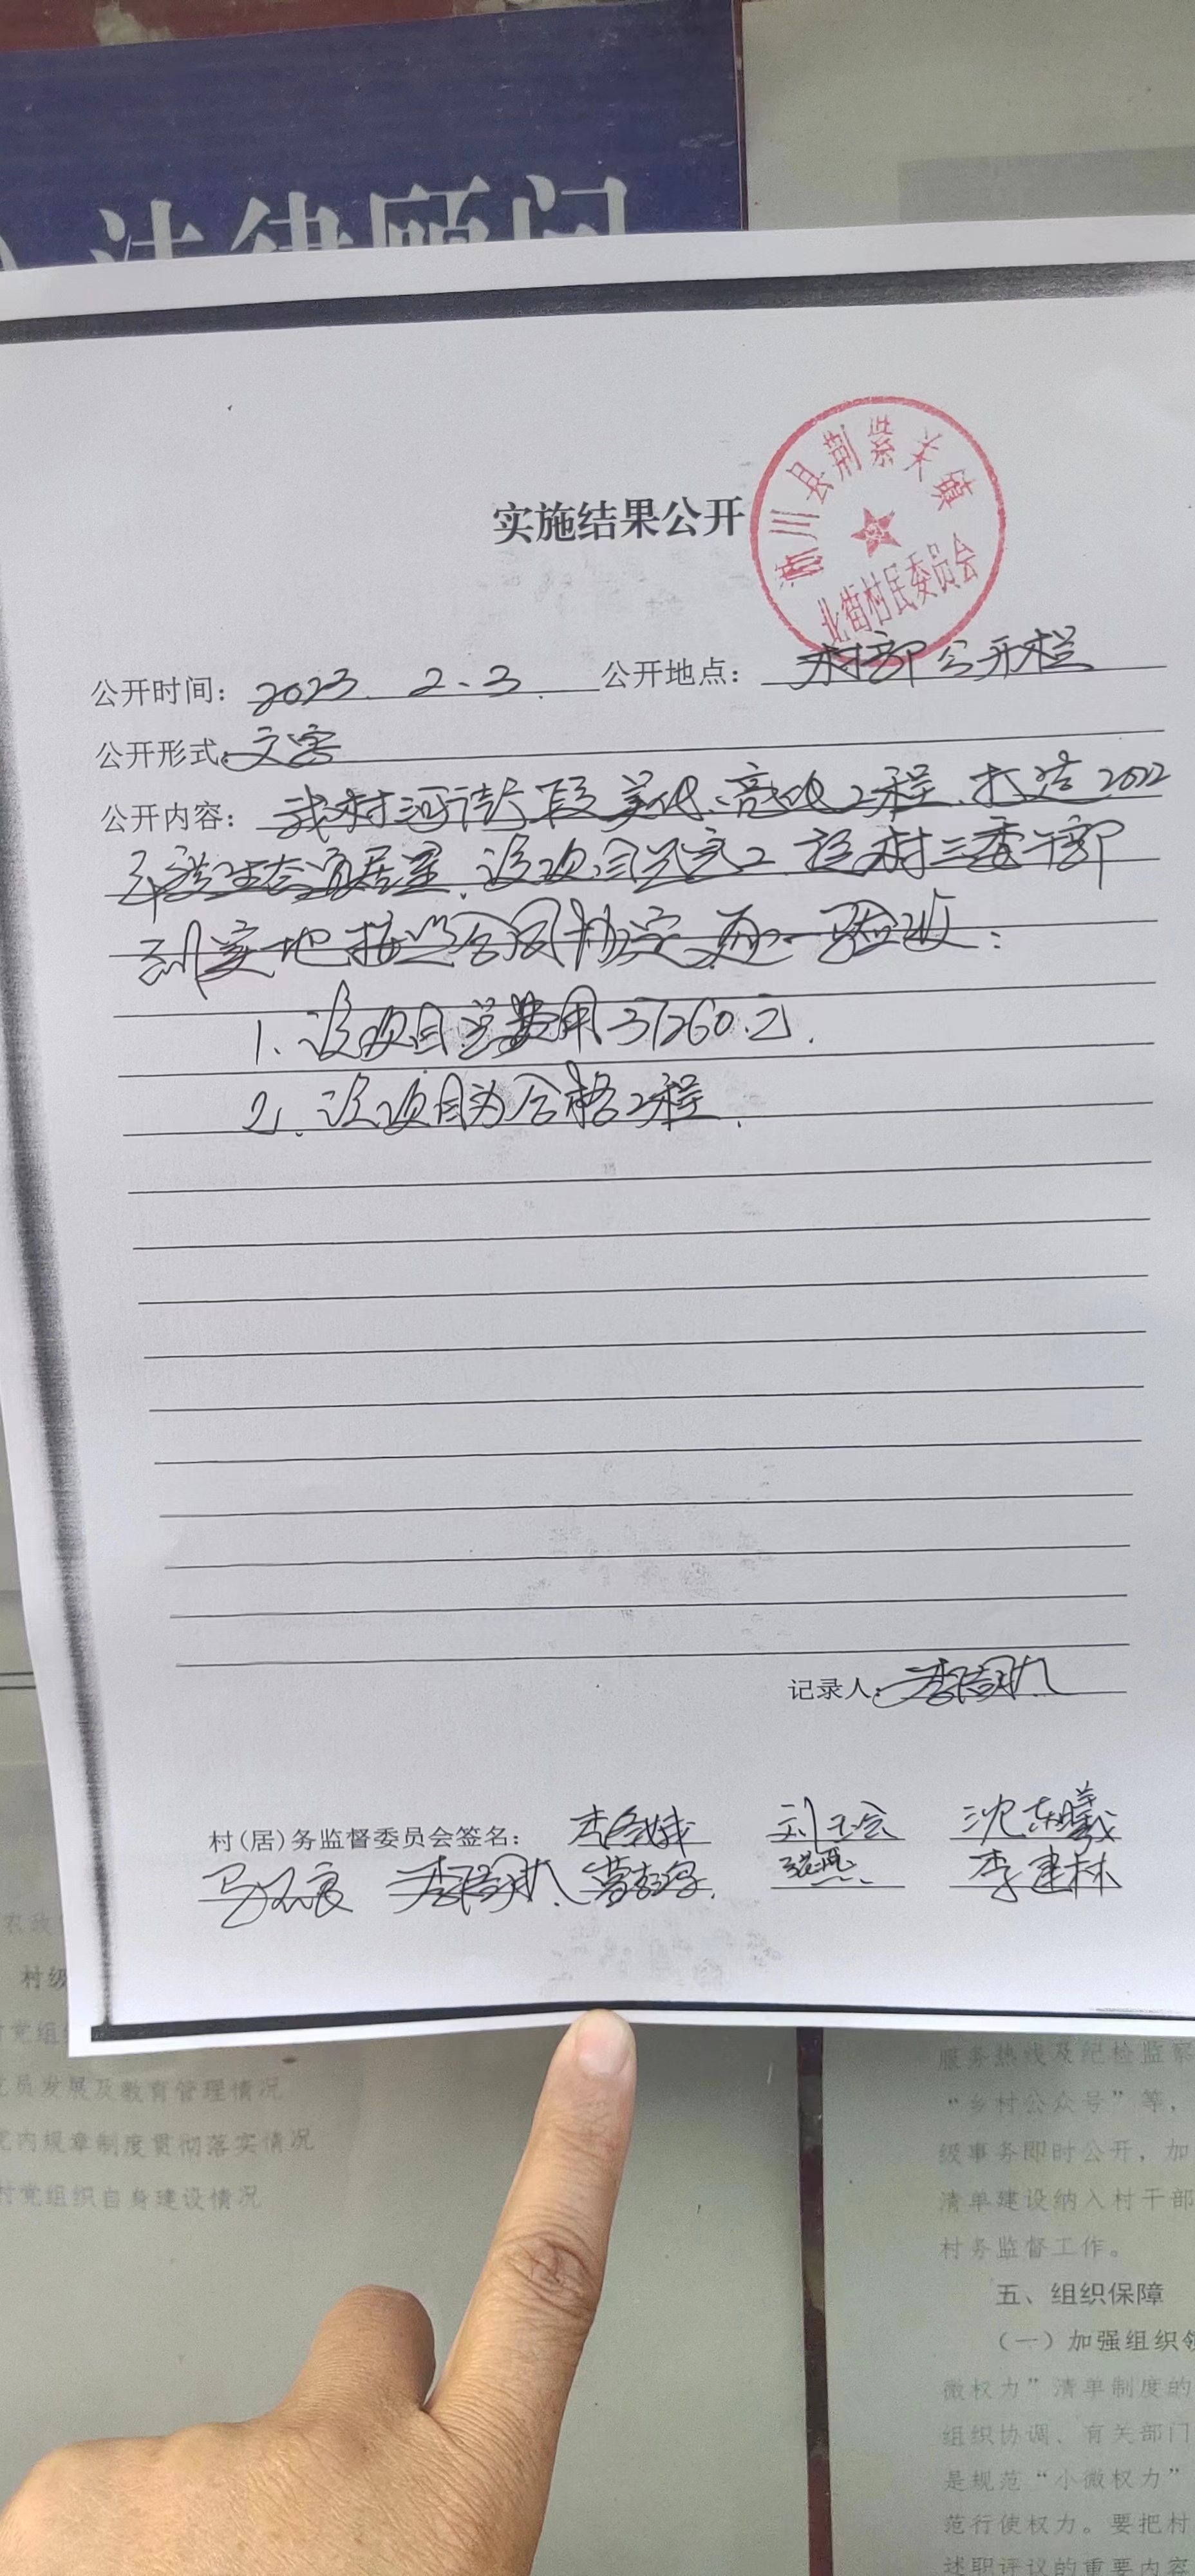 法律顾问
实施结果公开
淅川县荆紫关镇
北街村民委员会
公开时间: 2023.2.3. 公开地点: 村部公开栏
公开形式: 文字
公开内容: 我村河街段美化、亮化工程、打造2022
年 生态宜居 该项目已完工 经村三委干部
到实地按照合同协定 逐一验收:
1、该项目总费用31260元.
2、该项目为合格工程.
记录人:
村(居)务监督委员会签名: 刘玉会 沈东曦
李建林
农政
村级
党员发展及教育管理情况
党内规章制度贯彻落实情况
村党组织自身建设情况
服务热线及纪检监察
“乡村公众号”等,
级事务即时公开, 加
清单建设纳入村干部
村务监督工作。
五、组织保障
(一) 加强组织领
微权力”清单制度的
组织协调、有关部门
是规范“小微权力”
范行使权力。要把村
述职评议的重要内容